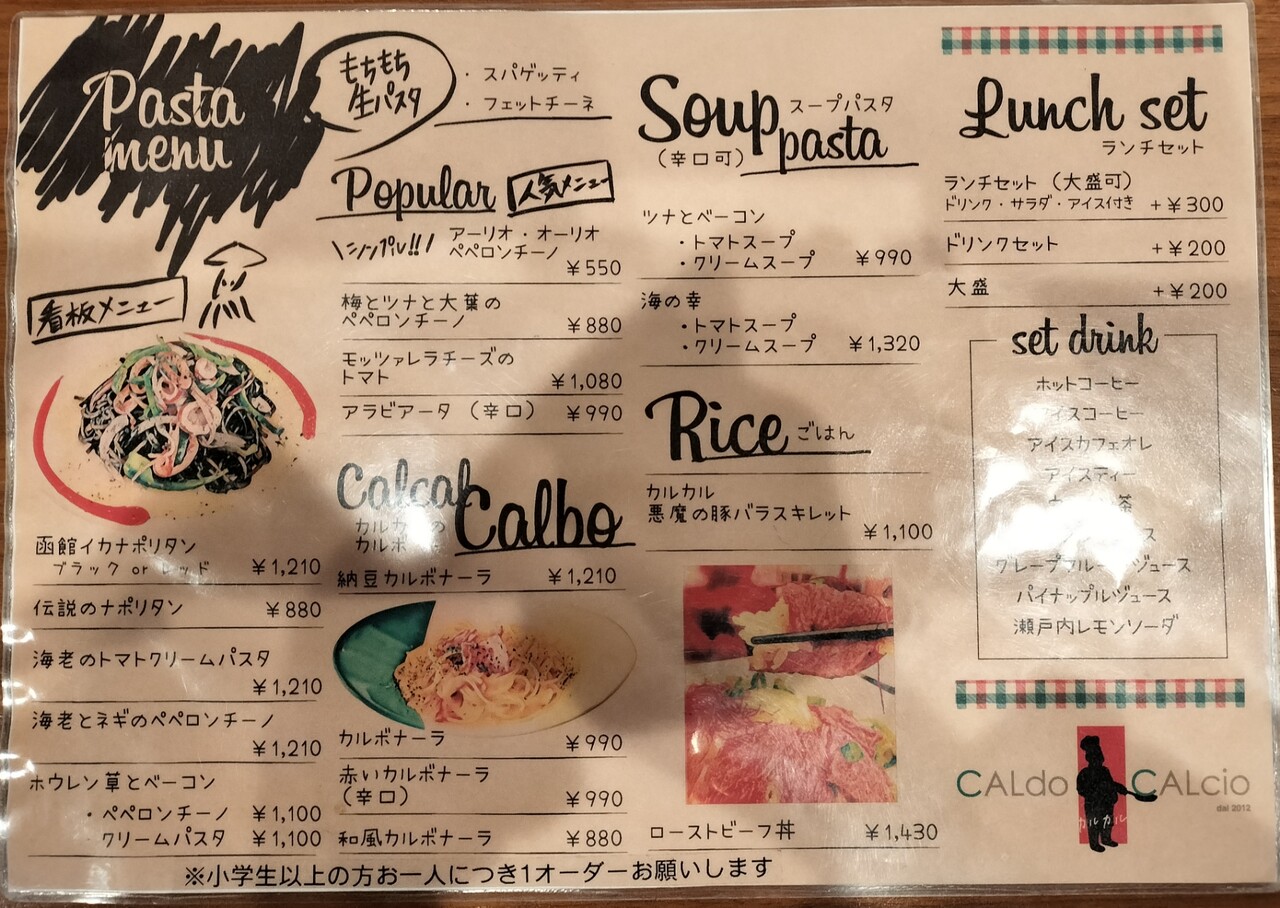 Pasta
menu
もちもち
生パスタ
・スパゲッティ
・フェットチーネ
看板メニュー
函館イカナポリタン
ブラック or レッド ￥1,210
伝説のナポリタン ￥880
海老のトマトクリームパスタ
￥1,210
海老とネギのペペロンチーノ
￥1,210
ホウレン草とベーコン
・ペペロンチーノ ￥1,100
・クリームパスタ ￥1,100
Popular 人気メニュー
\シンプル!!/ アーリオ・オーリオ
ペペロンチーノ
￥550
梅とツナと大葉の
ペペロンチーノ ￥880
モッツァレラチーズの
トマト ￥1,080
アラビアータ（辛口） ￥990
Calcal
Calbo
カルカルの
カルボ
納豆カルボナーラ ￥1,210
カルボナーラ ￥990
赤いカルボナーラ
（辛口） ￥990
和風カルボナーラ ￥880
Soup スープパスタ
（辛口可） pasta
ツナとベーコン
・トマトスープ
・クリームスープ ￥990
海の幸
・トマトスープ
・クリームスープ ￥1,320
Rice ごはん
カルカル
悪魔の豚バラスキレット
￥1,100
ローストビーフ丼 ￥1,430
Lunch set
ランチセット
ランチセット（大盛可）
ドリンク・サラダ・アイス付き +￥300
ドリンクセット +￥200
大盛 +￥200
set drink
ホットコーヒー
アイスコーヒー
アイスカフェオレ
アイスティー
茶
ス
グレープフルーツジュース
パイナップルジュース
瀬戸内レモンソーダ
CALdo CALcio
dal 2012
カルカル
※小学生以上の方お一人につき1オーダーお願いします